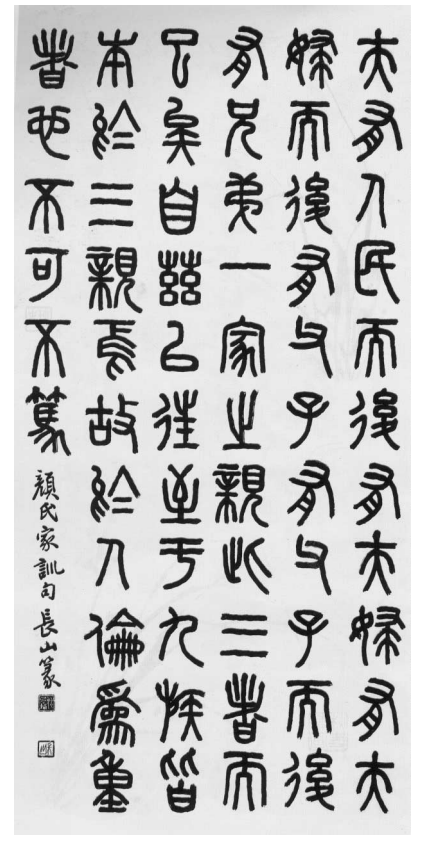 夫有人民而後有夫婦有夫
婦而後有父子有父子而後
有兄弟一家之親此三者而
已矣自茲以往至于九族皆
本於三親焉故於人倫爲重
者也不可不篤
顏氏家訓句長山篆